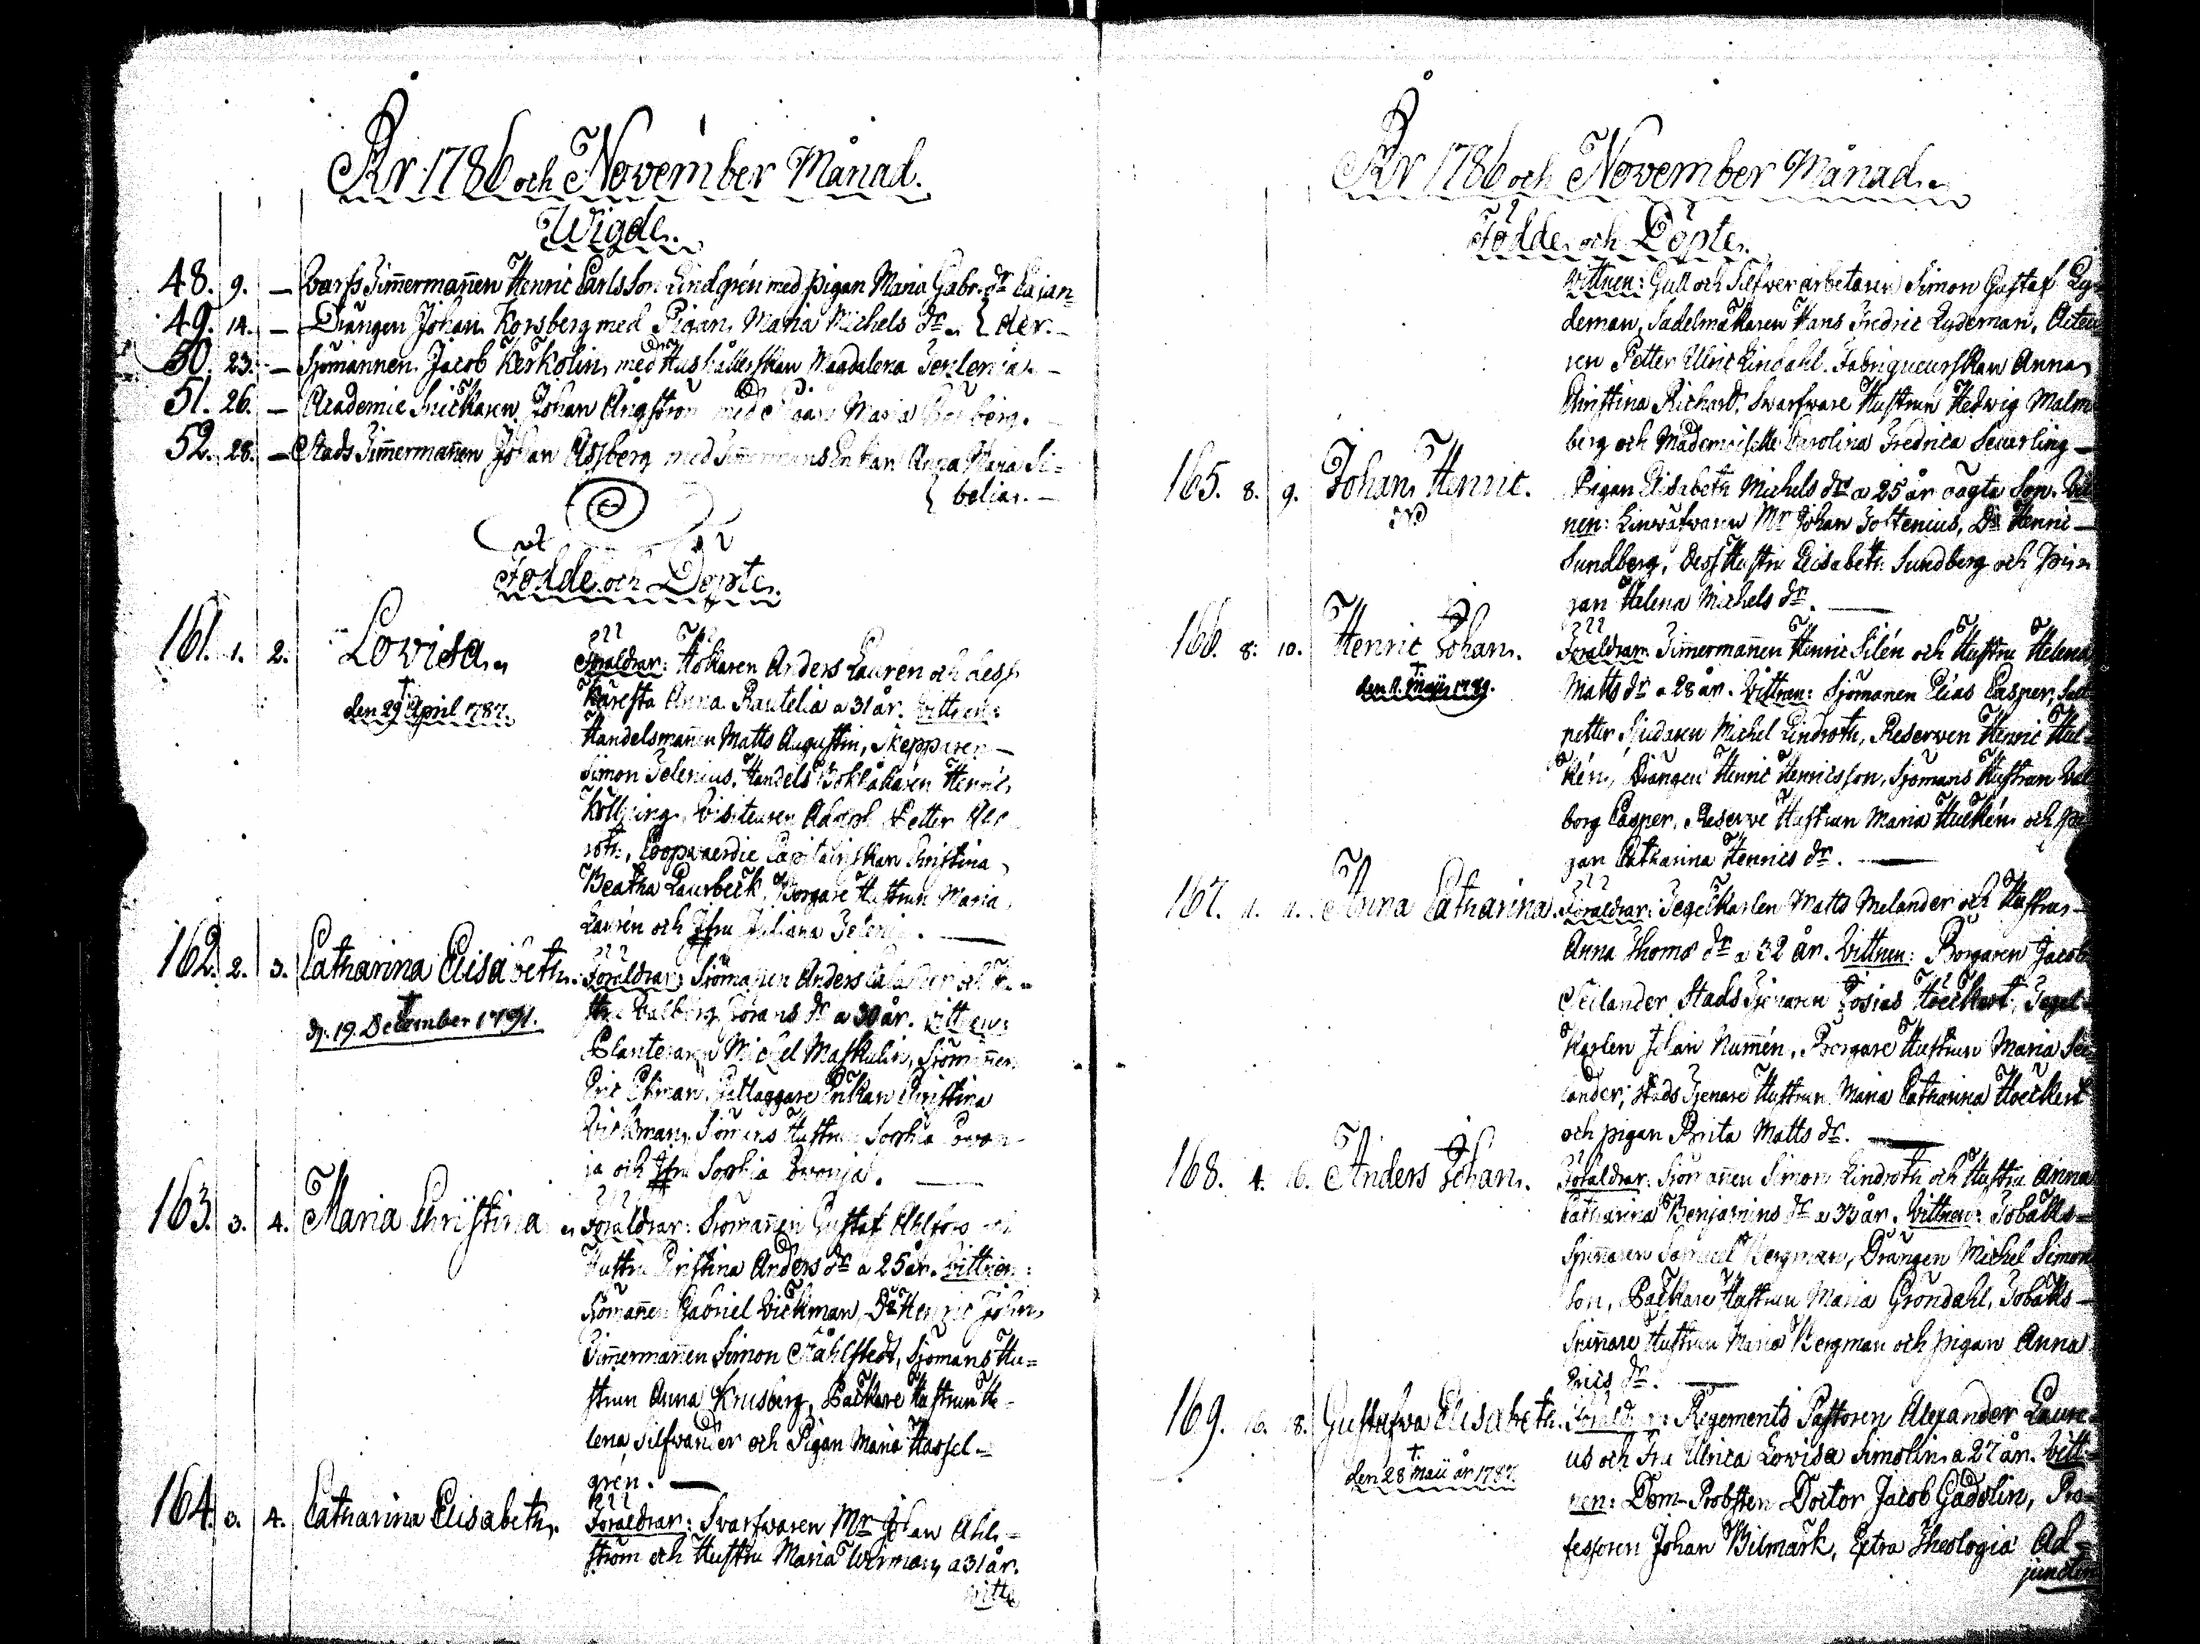 År 1786 och November Månad.
Wigde.
48. 9. — Warfs Zim̃erman̄en Henric Carlsson Lindgrén med pigan Maria Gabr. dr Cajan
49. 14. — Drängen Johan Korsberg med Pigan Maria Michels dr. { der. —
50. 23. — Sjömannen Jacob Kerkolin med Hushållerskan Magdalena —
51. 26. — Academie Snickaren Johan Ångström med Maria
52. 28. — Stads Zim̃erman̄en Johan Åssberg med Enkan Anna Maria Si=
{ belia. —
Födde och Döpte.
161. 1. 2. Lovisa. Föräldrar: Hökaren Anders Lauren och dess
Käresta Anna Rautelia a 31 år. Vittnen:
† den 29 April 1787.
Handelsman̄en Matts Augustin, Skepparen —
Simon Zelenius, Handels Bokhållaren Henric
Visiteuren Adolph Petter
Coopvaerdie Capitainskan Christina
Beatha Laurbeck, Borgare Hustrun Maria
Laurén och Jfru Juliana —
162. 2. 3. Catharina Elisabeth. Föräldrar: Sjöman̄en Anders och Hu=
stru Valborg Görans dr a 30 år. Vittnen:
† d. 19. December 1791.
Planteraren Michel Maskulin, Sjöman̄en
Eric Ekman, Enkan Christina
Wickman, Sjömans Hustrun Sophia
och Jfru Sophia —
163. 3. 4. Maria Christina Föräldrar: Sjöman̄en Gustaf Ahlfors och
Hustru Christina Anders dr a 25 år. Vittnen:
Sjöman̄en Gabriel Wickman, Dr Henric John,
Zim̃erman̄en Simon Ståhlstedt, Sjömans Hu=
strun Anna Krusberg, Backare Hustrun He=
lena Silfvander och Pigan Maria Hassel=
grén. —
164. 3. 4. Catharina Elisabeth. Föräldrar: Svarfvaren Mr Johan Ahl=
ström och Hustru Maria Wirman a 31 år.
Vittn
År 1786 och November Månad.
Födde och Döpte.
Vittnen: Gull och Silfver arbetaren Simon Gustaf Ly=
deman, Sadelmakaren Hans Fredric Lydeman,
Petter Ulric Lindahl. Fabriqueurskan Anna
Christina Richard, Svarfvare Hustrun Hedwig Malm
berg och Mademoiselle Carolina Fredrica Seuerling —
165. 8. 9. Johan Henric. Pigan Elisabeth Michels dr a 25 år oägta Son. Vit
nen: Linwäfvaren Mr Johan Dr Henric —
Sundberg, dess Hustru Elisabeth Sundberg och Pi=
gan Helena Michels dr. —
166. 8. 10. Henric Johan. Föräldrar: Zim̃erman̄en Henric Silén och Hustru Helena
Matts dr a 28 år. Vittnen: Sjömanen Elias Casper, Sal
† den 11. Maji 1789.
petter Sjudaren Michel Lindroth, Reserven Henric Hul=
kén, Drängen Henric Henricsson, Sjömans Hustrun Val
borg Casper, Reserve Hustrun Maria Hulkén och Pi
gan Catharina Henrics dr. —
167. 11. 11. Anna Catharina. Föräldrar: Tegelkarlen Matts Melander och Hustru —
Anna Thoms dr a 32 år. Vittnen: Borgaren Jacob
Seilander, Stads Tjenaren Josias Hoeckert, Tegel=
Karlen Johan Num̃én, Borgare Hustrun Maria Sei
lander, Stads Tjenare Hustrun Maria Catharina Hoeckert
och pigan Brita Matts dr. —
168. 4. 16. Anders Johan. Föräldrar: Sjöman̄en Simon Lindroth och Hustru Anna
Catharina Benjamins dr a 33 år. Vittnen: Tobaks=
Spin̄aren Samuel Bergman, Drängen Michel Simon
son, Backare Hustrun Maria Gröndahl, Tobaks —
Spin̄are Hustrun Maria Bergman och pigan Anna
Erics dr. —
169. 16. 18. Gustafva Elisabeth. Föräldrar: Regements Pastoren Alexander Laure=
us och Fru Ulrica Lovisa Simolin a 27 år. Vitt=
† den 28 Maii år 1787.
nen: Dom-Probsten Doctor Jacob Gadolin, Pro=
fessoren Johan Bilmark, Extra Theologiæ Ad=
juncten